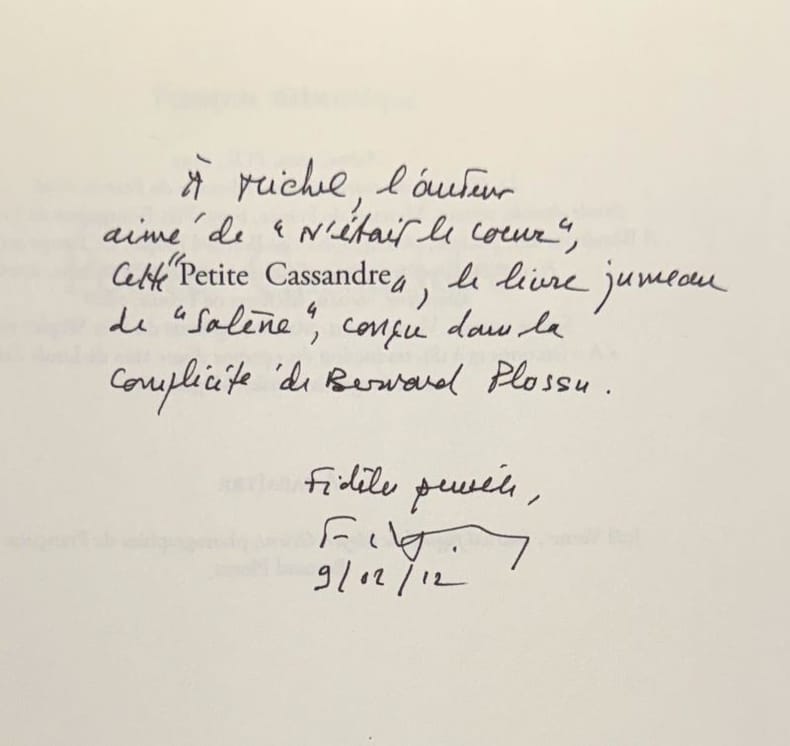 À Michel, l'auteur
aimé de "N'était le coeur",
cette "Petite Cassandre", le livre jumeau
de "Salève", conçu dans la
complicité de Bernard Plossu.
Fidèles pensées,
9/02/12